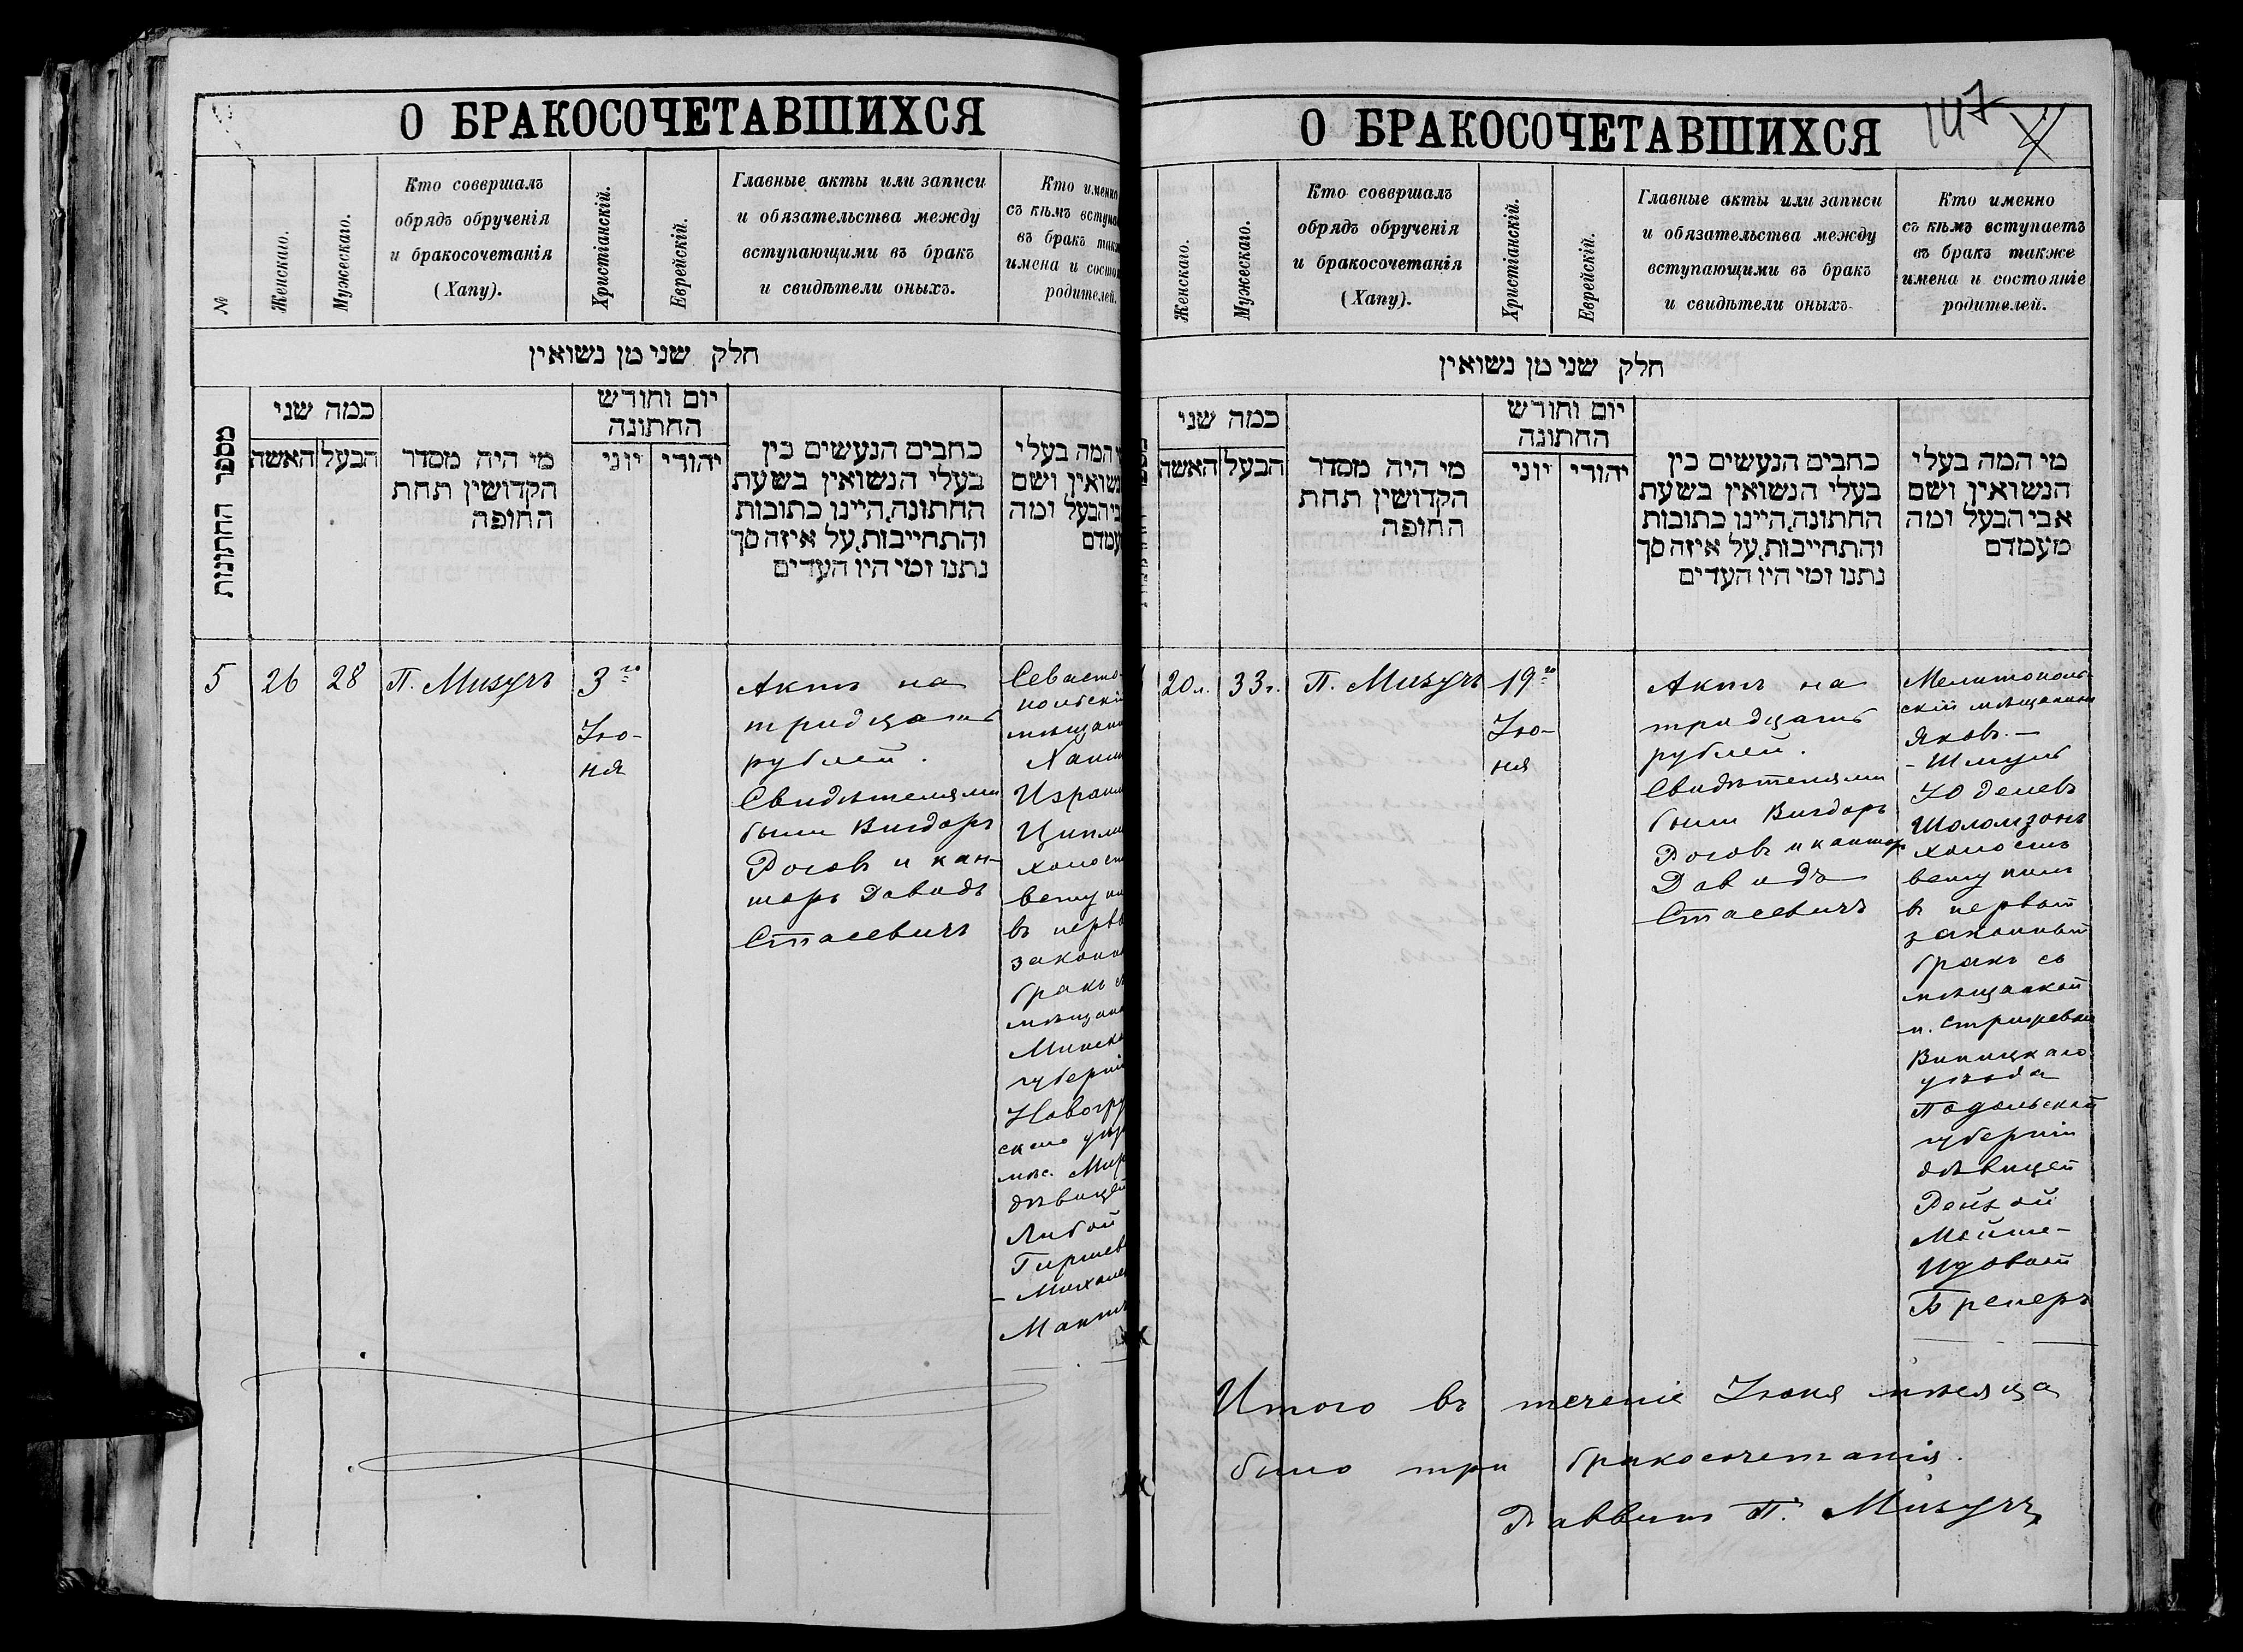 О БРАКОСОЧЕТАВШИХСЯ
№
Женскаго.
Мужескаго.
Кто соверш­алъ
обрядъ обрученія
и бракосочетанія
(Хапу).
Христіанскій.
Еврейскій.
Главные акты или записи
и обязательства между
вступающими въ бракъ
и свидѣтели оныхъ.
Кто именно
съ кѣмъ
въ бракъ
имена и
родителей.
חלק שני מן נשואין
מספר החתונות
כמה שני
האשה
הבעל
מי היה מסדר
הקדושין תחת
החופה
יום וחודש
החתונה
יוני
יהודי
כתבים הנעשים בין
בעלי הנשואין בשעת
החתונה, היינו כתובות
והתחייבות, על איזה סך
נתנו ומי היו העדים
המה בעלי
נשואין ושם
הבעל ומה
5
26
28
П. Мизучъ
3го
Iю-
ня
Актъ на
тридцать
рублей.
Свидѣтелями
были Вигдоръ
Роговъ и кан-
торъ Давидъ
Стасевичъ
Севасто-
въ
закон
бракъ
губерніи
мѣс. Мир
дѣвицей
Либой
О БРАКОСОЧЕТАВШИХСЯ
147
Женскаго.
Мужескаго.
Кто совершалъ
обрядъ обрученія
и бракосочетанія
(Хапу).
Христіанскій.
Еврейскій.
Главные акты или записи
и обязательства между
вступающими въ бракъ
и свидѣтели оныхъ.
Кто именно
съ кѣмъ вступаетъ
въ бракъ также
имена и состояніе
родителей.
חלק שני מן נשואין
כמה שני
האשה
הבעל
מי היה מסדר
הקדושין תחת
החופה
יום וחודש
החתונה
יוני
יהודי
כתבים הנעשים בין
בעלי הנשואין בשעת
החתונה, היינו כתובות
והתחייבות, על איזה סך
נתנו ומי היו העדים
מי המה בעלי
הנשואין ושם
אבי הבעל ומה
מעמדם
20л.
33г.
П. Мизучъ
19го
Iю-
ня
Актъ на
тридцать
рублей.
Свидѣтелями
были Вигдоръ
Роговъ и канторъ
Давидъ
Стасевичъ
Мелитополь-
скій мѣщанинъ
Яковъ-
-Шмуль
Юделевъ
Шоломзонъ
холостъ
вступилъ
въ первый
законный
бракъ съ
мѣщанкой
м. Стрижевки
Виницкаго
уѣзда
Подольской
губерніи
дѣвицей
Рейзой
Мойше-
Идовой
Бренеръ
Итого въ теченіе Iюня мѣсяца
было три бракосочетанія.
Раввинъ П. Мизучъ